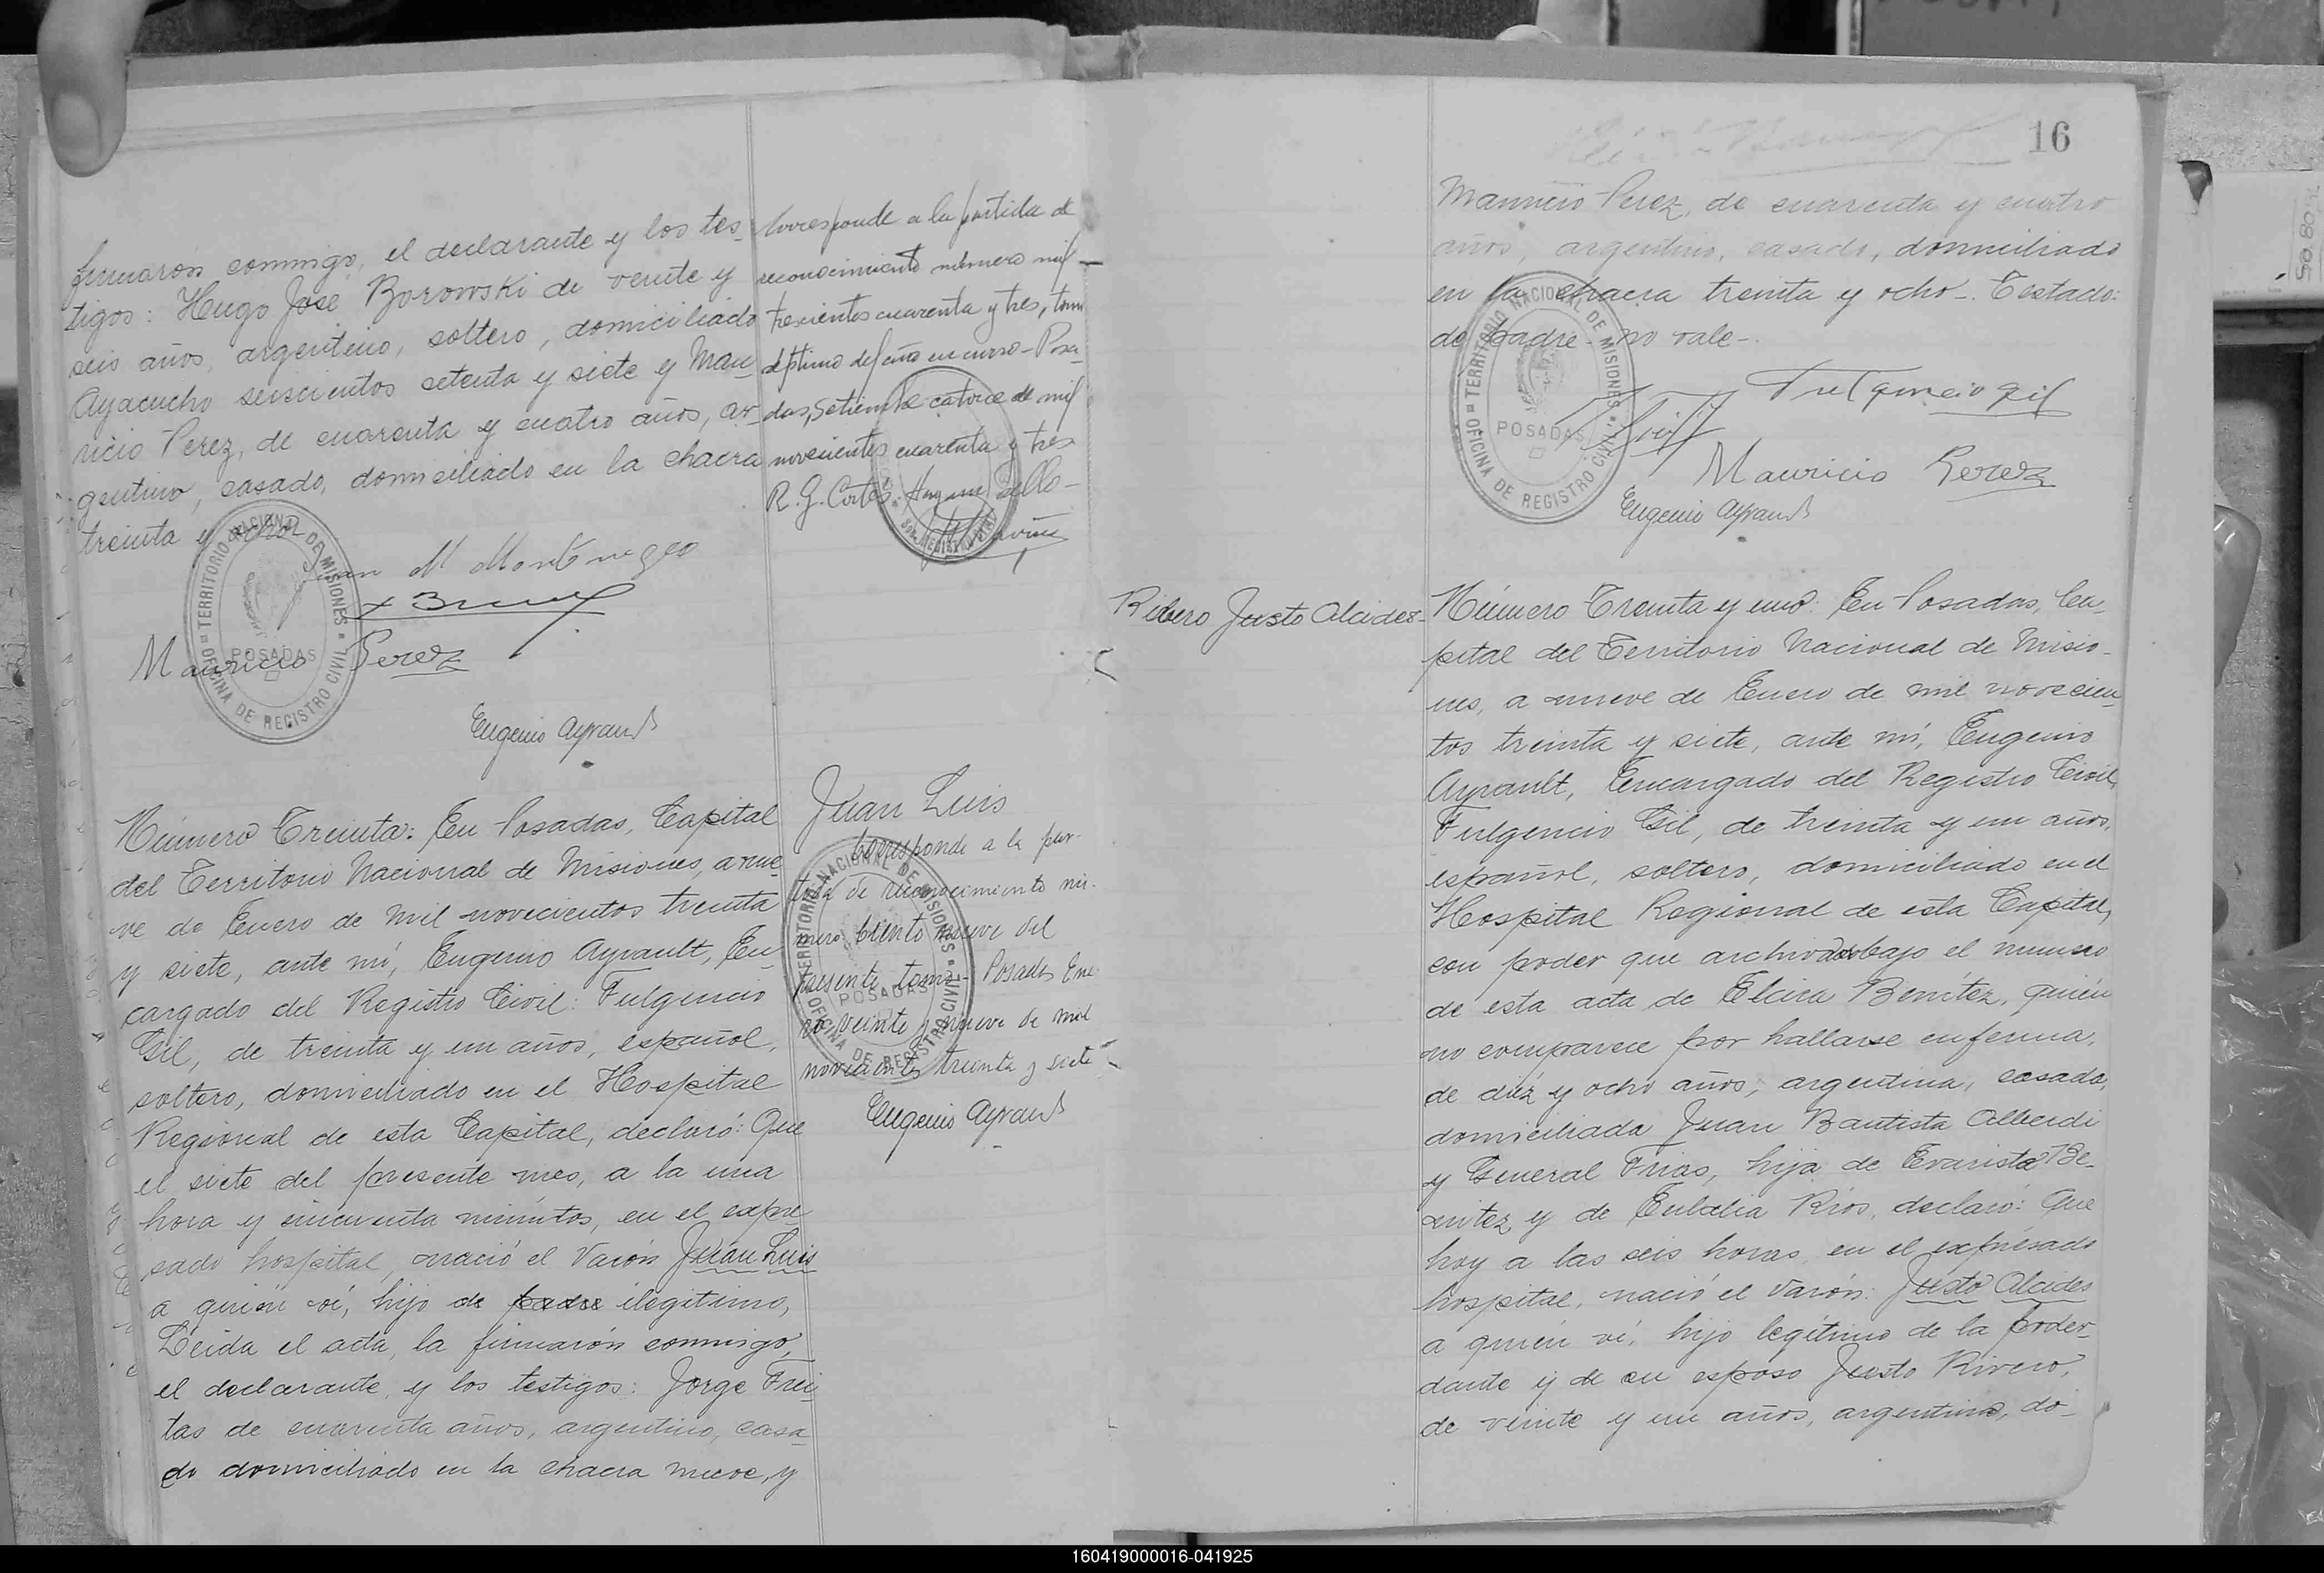 firmaron conmigo, el declarante y los tes-
tigos: Hugo José Borowski de veinte y
seis años, argentino, soltero, domiciliado
Ayacucho seiscientos setenta y siete y Mau-
ricio Perez, de cuarenta y cuatro años, ar-
gentino, casado, domiciliado en la chacra
treinta y ocho
Juan M Montenegro
Mauricio Perez
Eugenio Ayrault
Corresponde a la partida de
reconocimiento número mil
trescientos cuarenta y tres, tomo
séptimo del año en curso - Posa-
das, Setiembre catorce de mil
novecientos cuarenta y tres
R. G. Cortés
TERRITORIO NACIONAL DE MISIONES
POSADAS
OFICINA DE REGISTRO CIVIL
Número Treinta: En Posadas, Capital
del Territorio Nacional de Misiones, a nue
ve de Enero de mil novecientos treinta
y siete, ante mí, Eugenio Ayrault, En-
cargado del Registro Civil: Fulgencio
Gil, de treinta y un años, español,
soltero, domiciliado en el Hospital
Regional de esta Capital, declaró: Que
el siete del presente mes, a la una
hora y cincuenta minutos, en el expre
sado hospital, nació el varón Juan Luis
a quien ví, hijo de padre ilegitimo,
Leída el acta, la firmaron conmigo,
el declarante, y los testigos: Jorge Frei-
tas de cuarenta años, argentino, casa-
do domiciliado en la chacra nueve, y
Juan Luis
Corresponde a la par-
tida de reconocimiento nú-
mero ciento nueve del
presente tomo - Posadas Ene
ro veinte y nueve de mil
novecientos treinta y siete -
Eugenio Ayrault
TERRITORIO NACIONAL DE MISIONES
POSADAS
OFICINA DE REGISTRO CIVIL
16
Mauricio Perez, de cuarenta y cuatro
años, argentino, casado, domiciliado
en la chacra treinta y ocho -. Testado:
de padre - no vale -.
Fulgencio Gil
Mauricio Perez
Eugenio Ayrault
TERRITORIO NACIONAL DE MISIONES
POSADAS
OFICINA DE REGISTRO CIVIL
Ribero Justo Alcides -
Número Treinta y uno: En Posadas, Ca-
pital del Territorio Nacional de Misio-
nes, a nueve de Enero de mil novecien-
tos treinta y siete, ante mí, Eugenio
Ayrault, Encargado del Registro Civil,
Fulgencio Gil, de treinta y un años,
español, soltero, domiciliado en el
Hospital Regional de esta Capital,
con poder que archivado bajo el numero
de esta acta de Elcira Benítez, quién
no comparece por hallarse enferma,
de diéz y ocho años, argentina, casada,
domiciliada Juan Bautista Alberdi
y General Frias, hija de Evaristo Be-
nitez y de Eulalia Ríos, declaró: Que
hoy a las seis horas, en el expresado
hospital, nació el varón: Justo Alcides
a quién ví, hijo legítimo de la poder-
dante y de su esposo Justo Rivero,
de veinte y un años, argentino, do-
160419000016-041925